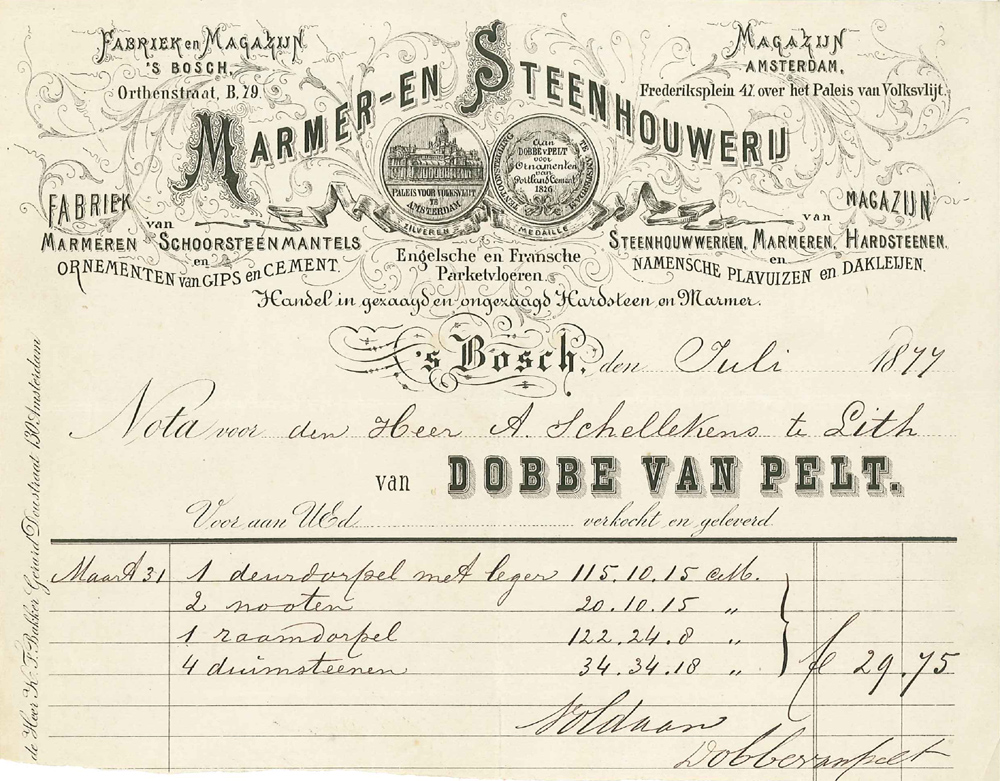 Fabriek en Magazijn
's Bosch,
Orthenstraat, B.79.
Magazijn
Amsterdam,
Frederiksplein 47 over het Paleis van Volksvlijt.
Marmer-en Steenhouwerij
PALEIS VOOR VOLKSVLIJT
TE
AMSTERDAM
TENTOONSTELLING TE AMSTERDAM
Aan
DOBBE v. PELT
voor
Ornamenten
van
Portland Cement
1826
ZILVEREN MEDAILLE
FABRIEK
van
MARMEREN SCHOORSTEENMANTELS
en
ORNEMENTEN van GIPS en CEMENT.
Engelsche en Fransche
Parketvloeren.
MAGAZIJN
van
STEENHOUWWERKEN, MARMEREN, HARDSTEENEN,
en
NAMENSCHE PLAVUIZEN en DAKLEIJEN.
Handel in gezaagd en ongezaagd Hardsteen en Marmer.
's Bosch, den Juli 1877
Nota voor den Heer A. Schellekens te Lith
van DOBBE VAN PELT.
Voor aan UEd. verkocht en geleverd
Maart 31 1 deurdorpel met leger 115.10.15 cM.
2 nooten 20.10.15 "
1 raamdorpel 122.24.8 "
4 duimsteenen 34.34.18 " f 29.75
Voldaan
Dobbe van Pelt
de Heer K.F. Bakker Gerard Doustraat 130 Amsterdam